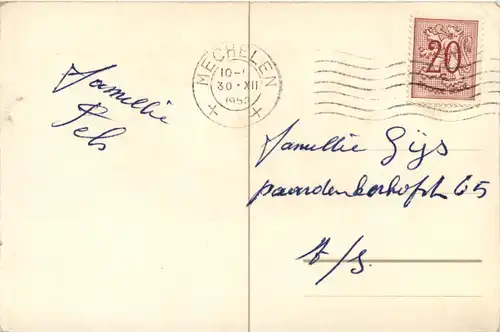 Famillie
Pels
MECHELEN
10-
30-XII
195
20
Famillie Gijs
paardenkerkhofstr 65
t/s.